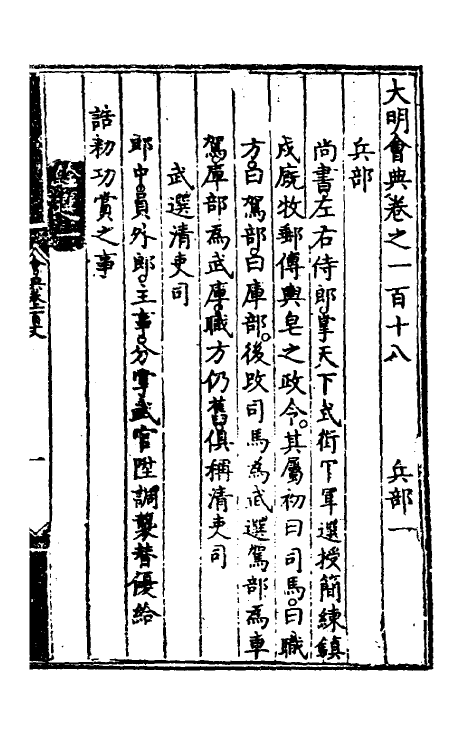 大明會典卷之一百十八　兵部一
兵部
尚書。左右侍郎。掌天下武衛官軍選授簡練鎮
戍廐牧郵傳輿皂之政令。其屬初曰司馬。曰職
方。曰駕部。曰庫部。後改司馬為武選駕部為車
駕庫部為武庫。職方仍舊。俱稱清吏司
武選清吏司
郎中。員外郎。主事。分掌武官陞調襲替優給
誥勑功賞之事
一